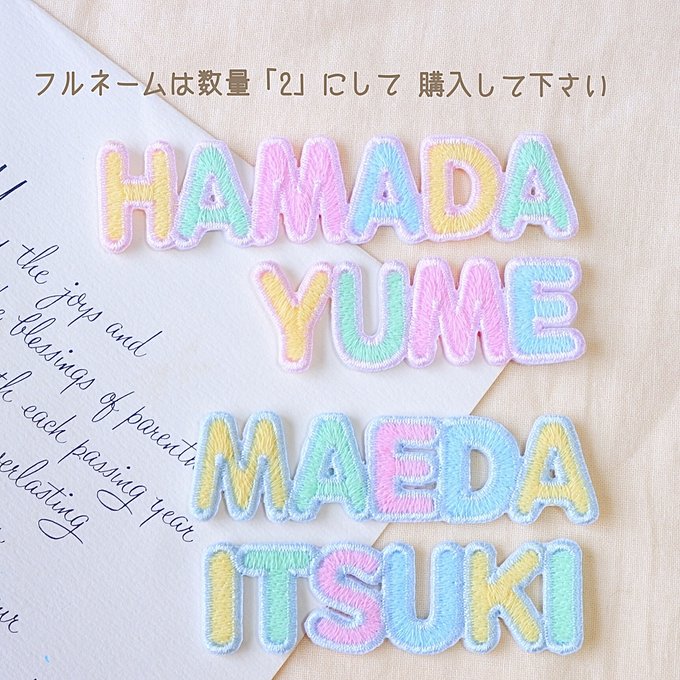 フルネームは数量「2」にして 購入して下さい
HAMADA
YUME
MAEDA
ITSUKI
the joys and
blessings of
each passing year
everlasting